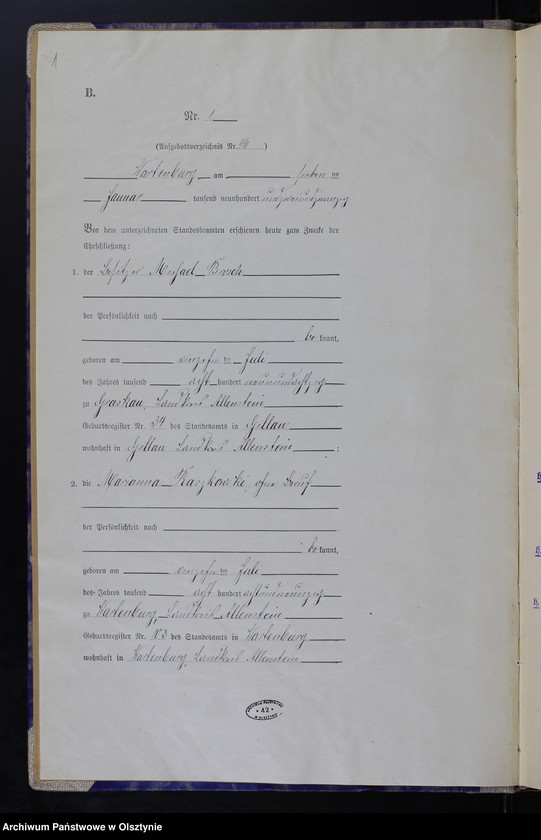 1
B.
Nr. 1
(Aufgebotsverzeichnis Nr. )
Wartenburg am sieben ten
Januar tausend neunhundert undzweiundzwanzig
Vor dem unterzeichneten Standesbeamten erschienen heute zum Zwecke der
Eheschließung:
1. der Besitzer Michael
der Persönlichkeit nach
be kannt,
geboren am vierzehn ten Juli
des Jahres tausend acht hundert neunundachtzig
zu Graskau, Landkreis Allenstein
Geburtsregister Nr. 34 des Standesamts in Gillau
wohnhaft in Gillau Landkreis Allenstein ;
2. die Marianna Kaszkowski, ohne Beruf
der Persönlichkeit nach
be kannt,
geboren am vierzehn ten Juli
des Jahres tausend acht hundert achtundneunzig
zu Wartenburg, Landkreis Allenstein
Geburtsregister Nr. des Standesamts in Wartenburg
wohnhaft in Wartenburg, Landkreis Allenstein
ARCHIWUM PAŃSTWOWE
* A2 *
W OLSZTYNIE
Archiwum Państwowe w Olsztynie